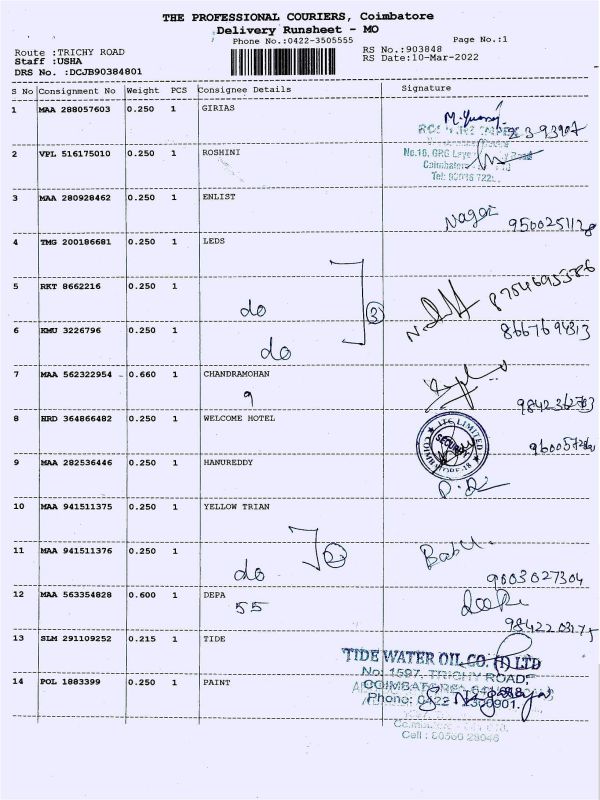 THE PROFESSIONAL COURIERS, Coimbatore
Delivery Runsheet - MO
Phone No.:0422-3505555
Page No.:1
Route :TRICHY ROAD
RS No.:903848
Staff :USHA
RS Date:10-Mar-2022
DRS No. :DCJB90384801
S No Consignment No Weight PCS Consignee Details Signature
1 MAA 288057603 0.250 1 GIRIAS
2 VPL 516175010 0.250 1 ROSHINI
No.16, GRG Road
Coimbatore
3 MAA 280928462 0.250 1 ENLIST
4 TMG 200186681 0.250 1 LEDS
5 RKT 8662216 0.250 1
do 3 8754695386
6 KMU 3226796 0.250 1
do 8667694313
7 MAA 562322954 0.660 1 CHANDRAMOHAN
9
8 HRD 364866482 0.250 1 WELCOME HOTEL
ITC LIMITED
SECURITY
9 MAA 282536446 0.250 1 HANUREDDY
10 MAA 941511375 0.250 1 YELLOW TRIAN
11 MAA 941511376 0.250 1
do 2 Babu 9003027304
12 MAA 563354828 0.600 1 DEPA
55
13 SLM 291109252 0.215 1 TIDE
TIDE WATER OIL CO. (I) LTD
No: 1597, TRICHY ROAD,
14 POL 1883399 0.250 1 PAINT
COIMBATORE
Phone: 0422